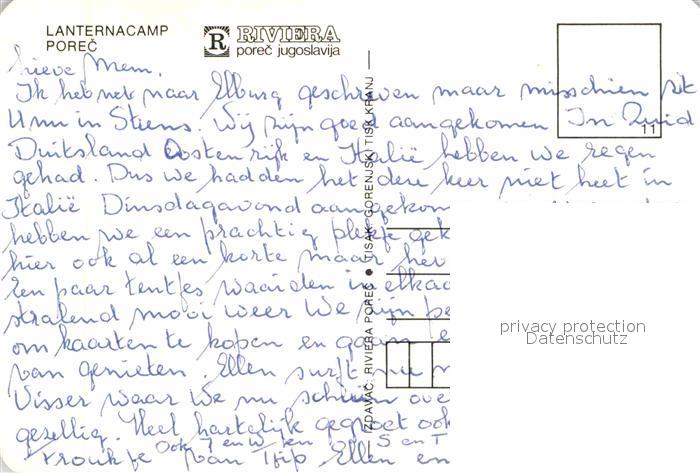 LANTERNACAMP
POREČ
R RIVIERA
poreč jugoslavija
lieve Mem,
Ik heb net naar Elburg geschreven maar misschien zit
U nu in Stiens. Wij zijn goed aangekomen In Zuid
11
Duitsland Oostenrijk en Italië hebben we regen
gehad. Dus we hadden het deze keer niet heet in
Italië Dinsdagavond aangekom
hebben we een prachtig plekje gek
hier ook al een korte maar hev
Een paar tentjes waaiden in elkaa
stralend mooi weer We zijn
om kaarten te kopen en gaan
van genieten. Ellen surft
Visser waar We nu schuin ove
gezellig. Heel hartelijk gegroet ook
Ook J en W en S en T
Froukje van Ellen en
IZDAVAČ: RIVIERA POREČ ● TISAK: GORENJSKI TISK KRANJ
privacy protection
Datenschutz